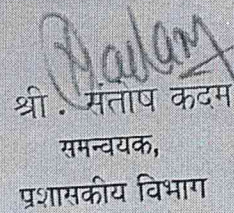 श्री. संतोष कदम
समन्वयक,
प्रशासकीय विभाग